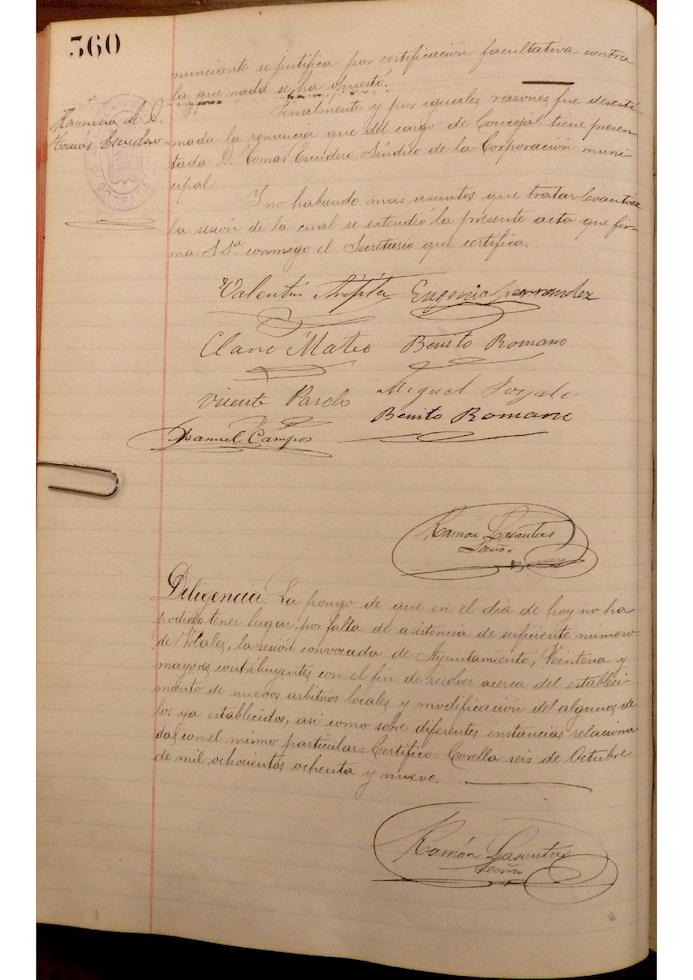 560
nunciante se justifica por certificación facultativa contra
la que nada se ha opuesto.
Renuncia de D.
Tomas Escudero
Finalmente y por iguales razones fue desesti-
mada la renuncia que del cargo de Concejal tiene presen-
tada D. Tomas Escudero, Síndico de la Corporación muni-
cipal.
Y no habiendo mas asuntos que tratar levantose
la sesión de la cual se extendió la presente acta que fir-
ma S.Sª conmigo el Secretario que certifica.
Valentín Eugenio Fernandez
Mateo Benito Romano
Vicente Miguel
Benito Romano
Manuel Campos
Ramón Lasantas
Srio
Diligencia. La pongo de que en el dia de hoy no ha
podido tener lugar, por falta de asistencia de suficiente número
de Vocales, la sesión convocada de Ayuntamiento, Veintena y
mayores contribuyentes con el fin de resolver acerca del estableci-
miento de nuevos arbitrios locales y modificación del algunos de
los ya establecidos, asi como sobre diferentes instancias relaciona
das con el mismo particular: Certifico = Corella seis de Octubre
de mil ochocientos ochenta y nueve.
Ramón Lasantas
Srio